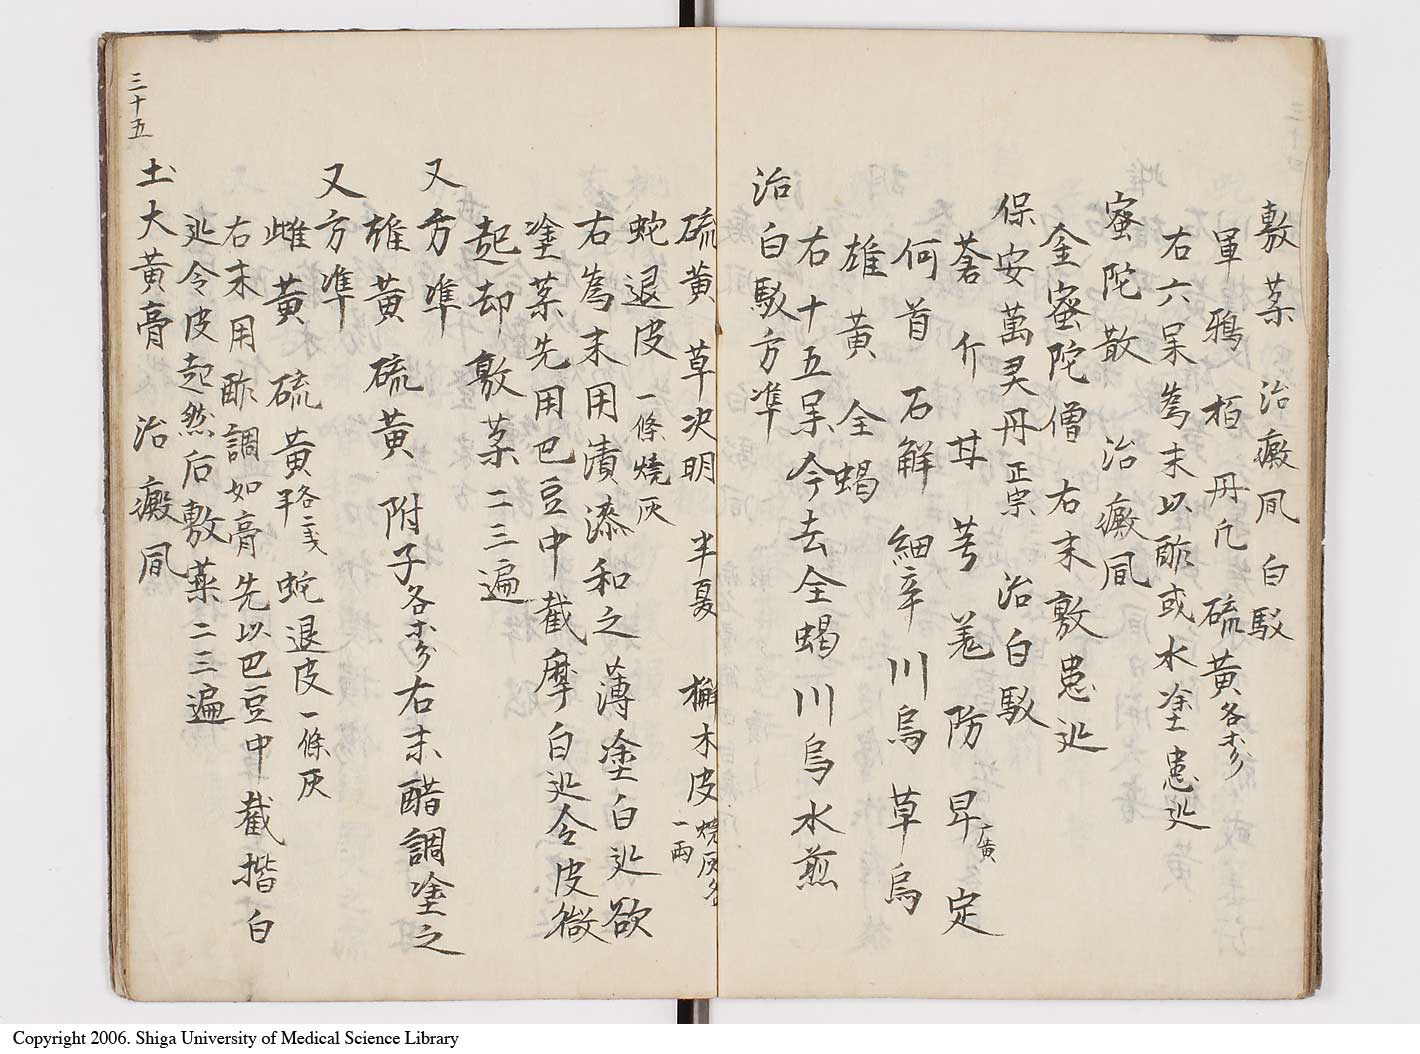 敷薬 治癜風白駁
軍 鴉 栢 丹 硫黄
右六味為末以酢或水塗患処
蜜陀散 治癜風
金蜜陀僧 右末敷患処
保安萬灵丹 正宗 治白駁
蒼 介 甘 羌 防 定
何首 石斛 細辛 川烏 草烏
雄黄 全蝎
右十五味今去全蝎川烏水煎
治白駁方準
硫黄 草决明 半夏 槲木皮
一両
蛇退皮 一條燒灰
右為末用漬漆和之薄塗白処欲
塗薬先用巴豆中截摩白処令皮微
起却敷薬二三遍
又方準
雄黄 硫黄 附子 右末醋調塗之
又方準
雌黄 硫黄 蛇退皮 一條灰
右末用酢調如膏先以巴豆中截揩白
処令皮起然后敷薬二三遍
土大黄膏 治癜風
三十五
三十四
Copyright 2006. Shiga University of Medical Science Library